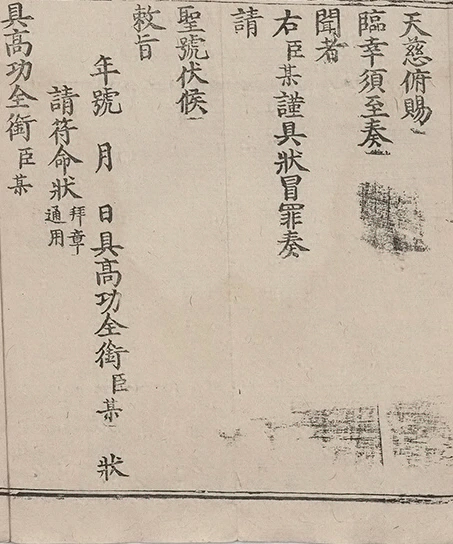 天慈俯賜
臨幸須至奏
聞者
右臣某謹具狀冒罪奏
請
聖號伏候
敕旨
年號 月 日具高功全銜臣某 狀
請符命狀拜章通用
具高功全銜臣某